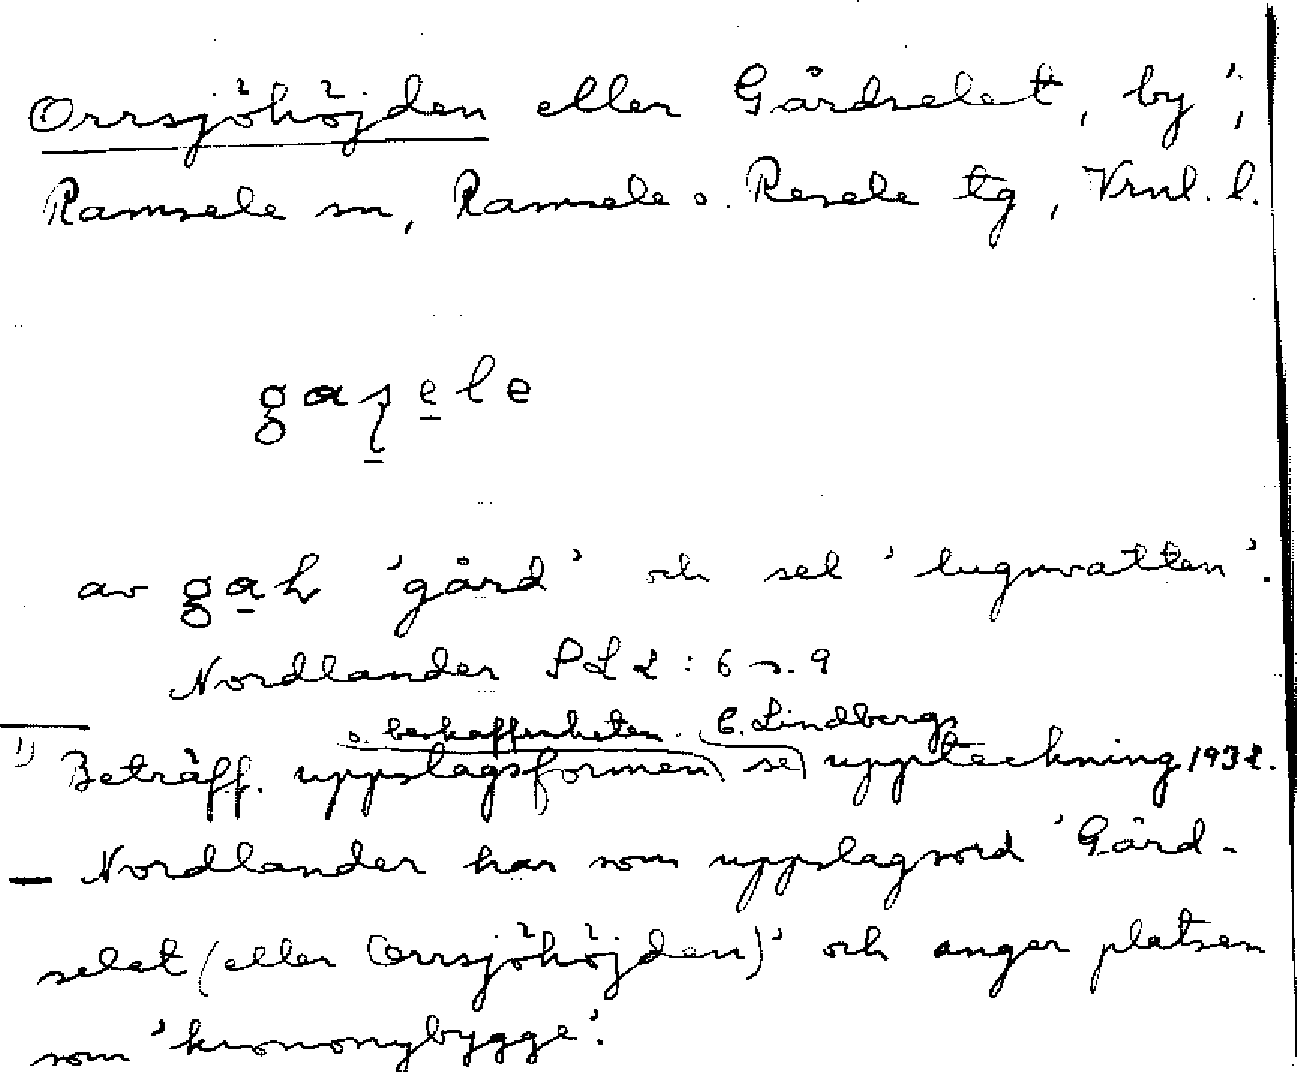 Orrsjöhöjden eller Gårdselet, by ¹,
Ramsele sn, Ramsele o. Resele tg, Vrnl. l.
gaʂele
av gaɽ 'gård' och sel 'lugnvatten'.
Nordlander PL 2: 6 s. 9
o. beskaffenheten. C. Lindbergs
1) Beträff. uppslagsformen se uppteckning 1932.
— Nordlander har som uppslagsord 'Gård-
selet (eller Orrsjöhöjden)' och anger platsen
som 'krononybygge'.